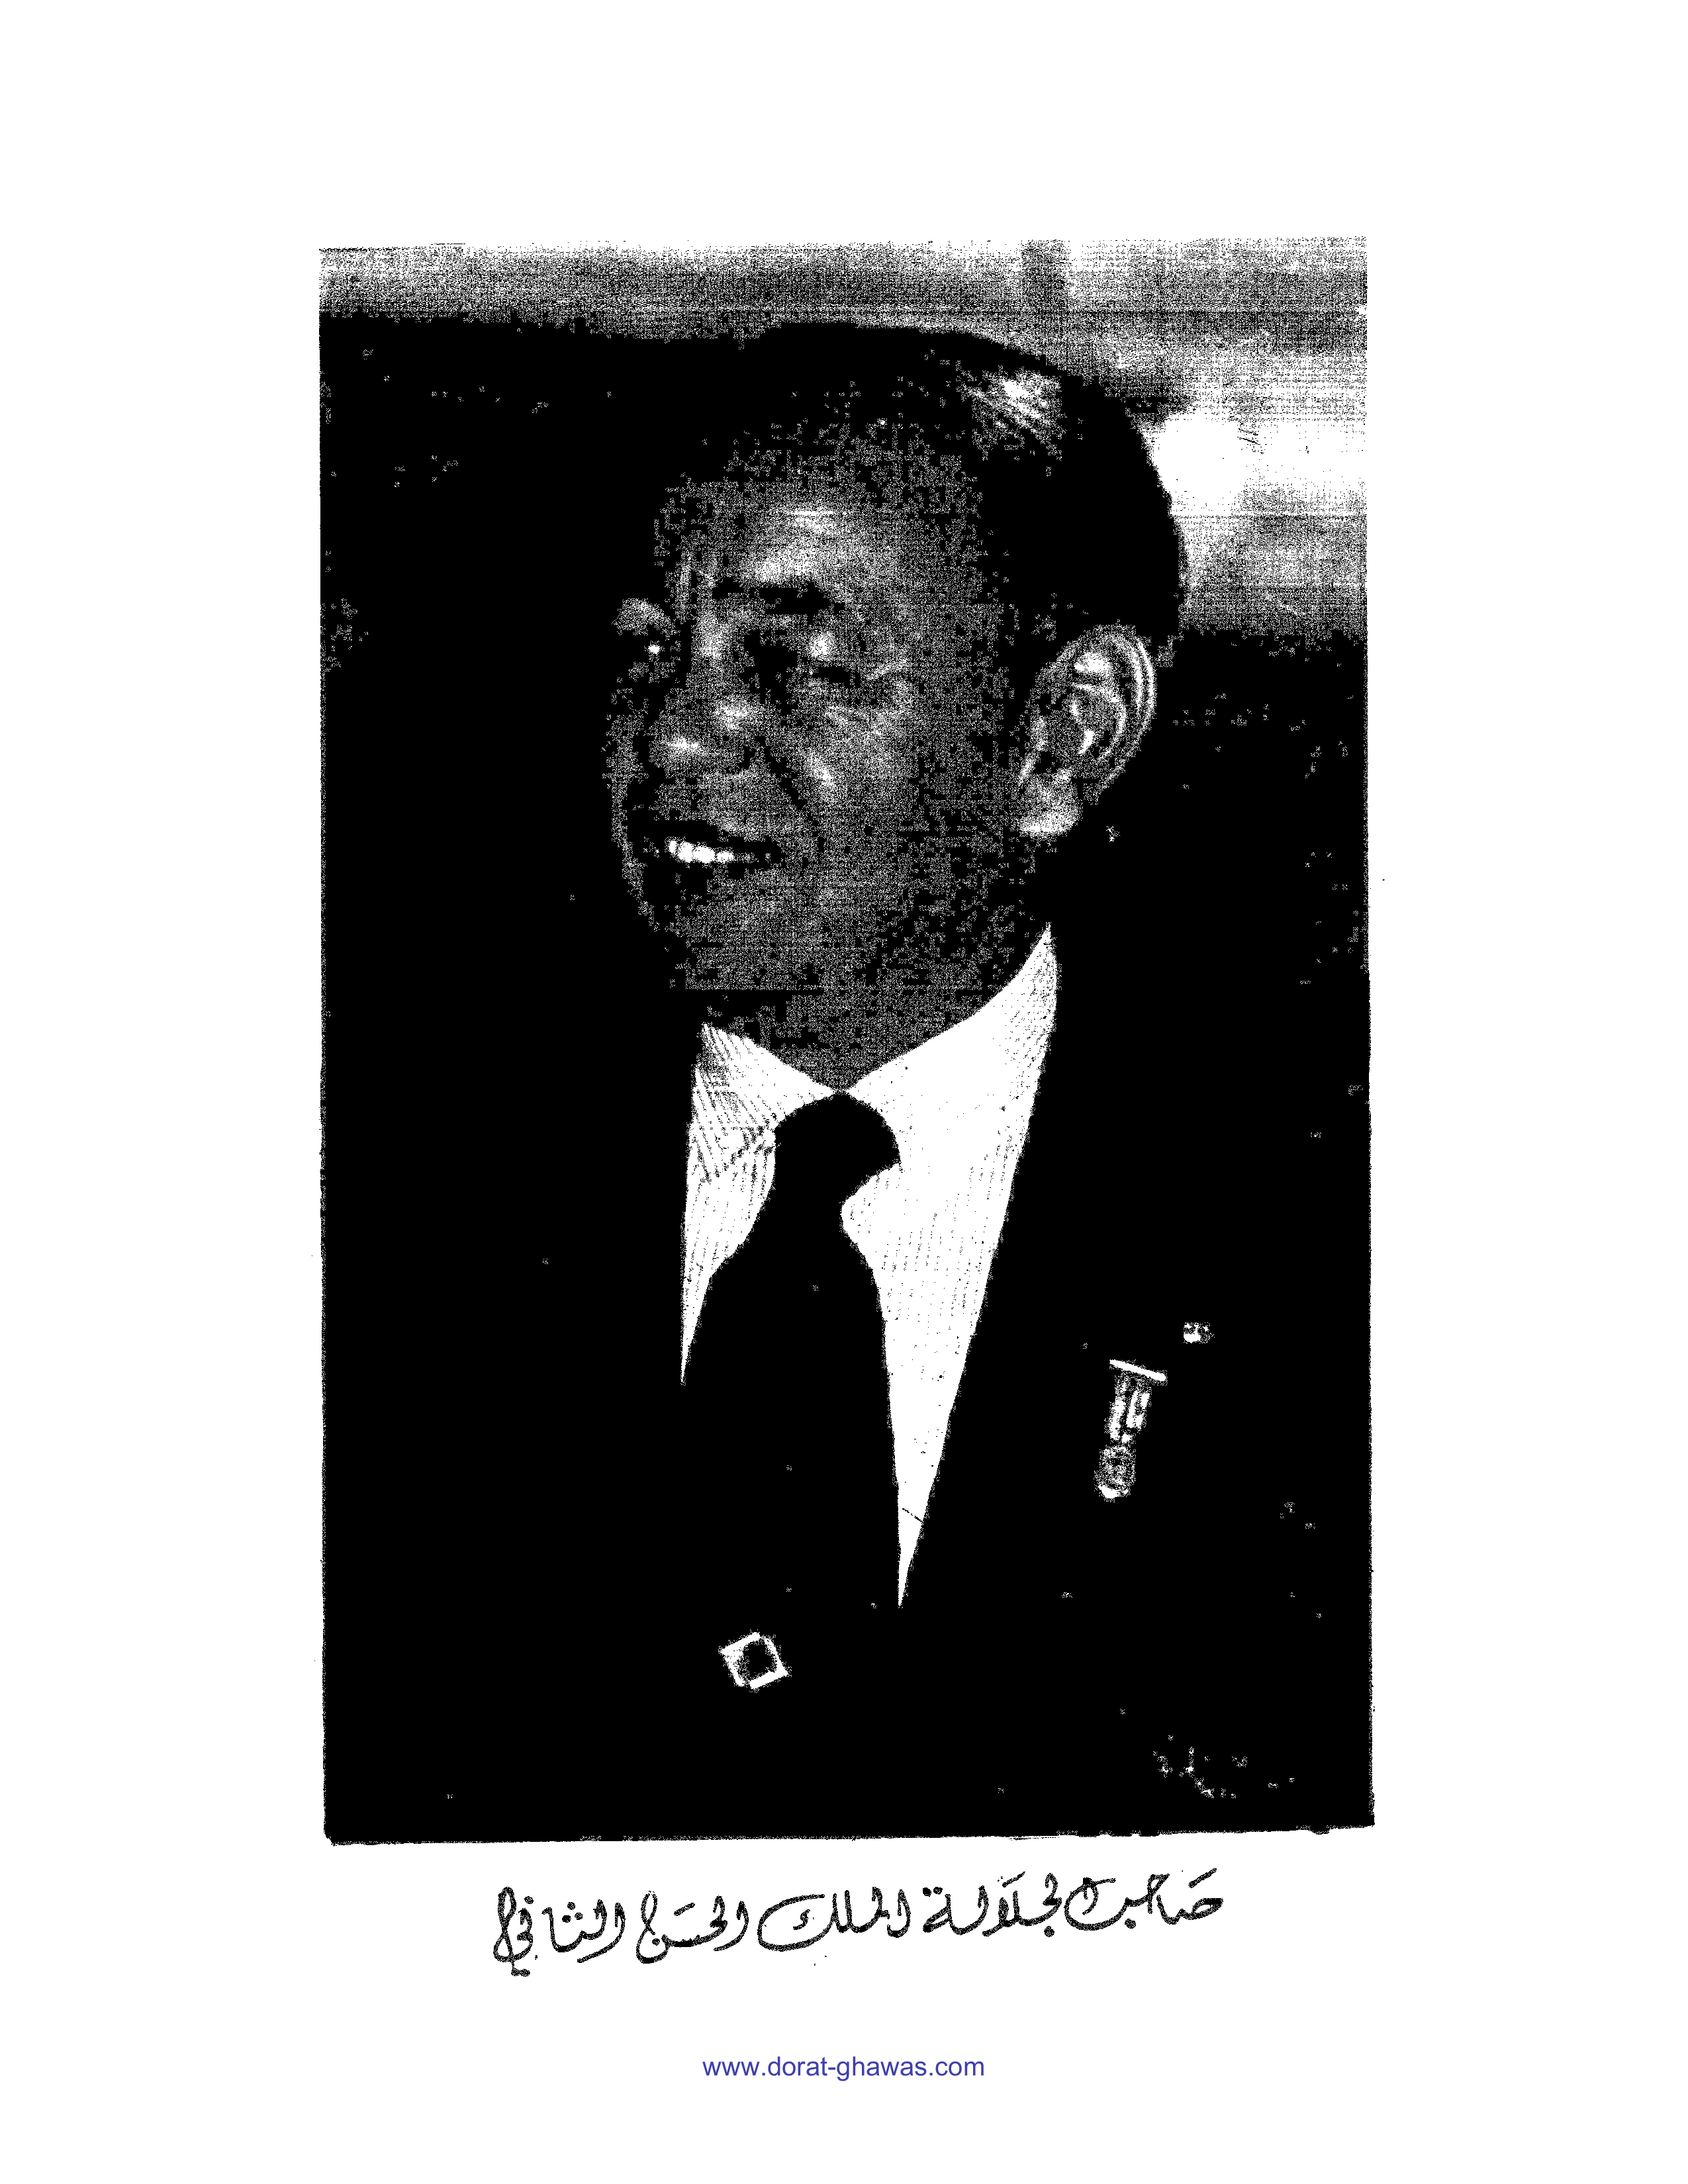 صَاحب الجلَالة الملك الحسَن الثاني
www.dorat-ghawas.com